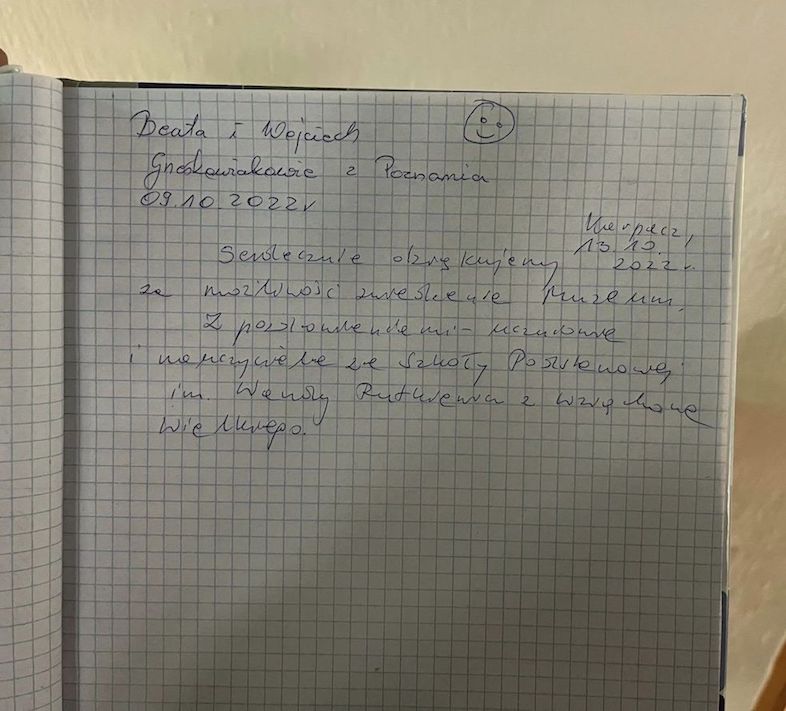 Beata i Wojciech
Gnoskowiakowie z Poznania
09.10.2022r
Karpacz,
13.10.
2022 r.
Serdecznie dziękujemy
za możliwość zwiedzenia Muzeum.
Z pozdrowieniami – uczniowie
i nauczyciele ze Szkoły Podstawowej
im. Wandy Rutkiewicz z
Wielkiego.